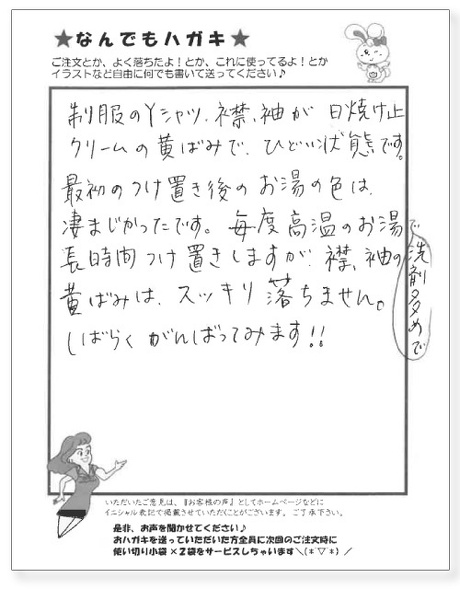 ★なんでもハガキ★
ご注文とか、よく落ちたよ！とか、これに使ってるよ！とか
イラストなど自由に何でも書いて送ってください♪
制服のYシャツ、襟、袖が日焼け止
クリームの黄ばみで、ひどい状態です。
最初のつけ置き後のお湯の色は、
凄まじかったです。毎度高温のお湯で
長時間つけ置きしますが、襟、袖の
洗剤多めで
黄ばみは、スッキリ落ちません。
しばらくがんばってみます!!
いただいたご意見は、『お客様の声』としてホームページなどに
イニシャル表記で掲載させていただくことがございます。ご了承下さい。
是非、お声を聞かせてください♪
おハガキを送っていただいた方全員に次回のご注文時に
使い切り小袋×2袋をサービスしちゃいます＼(*▽*)／